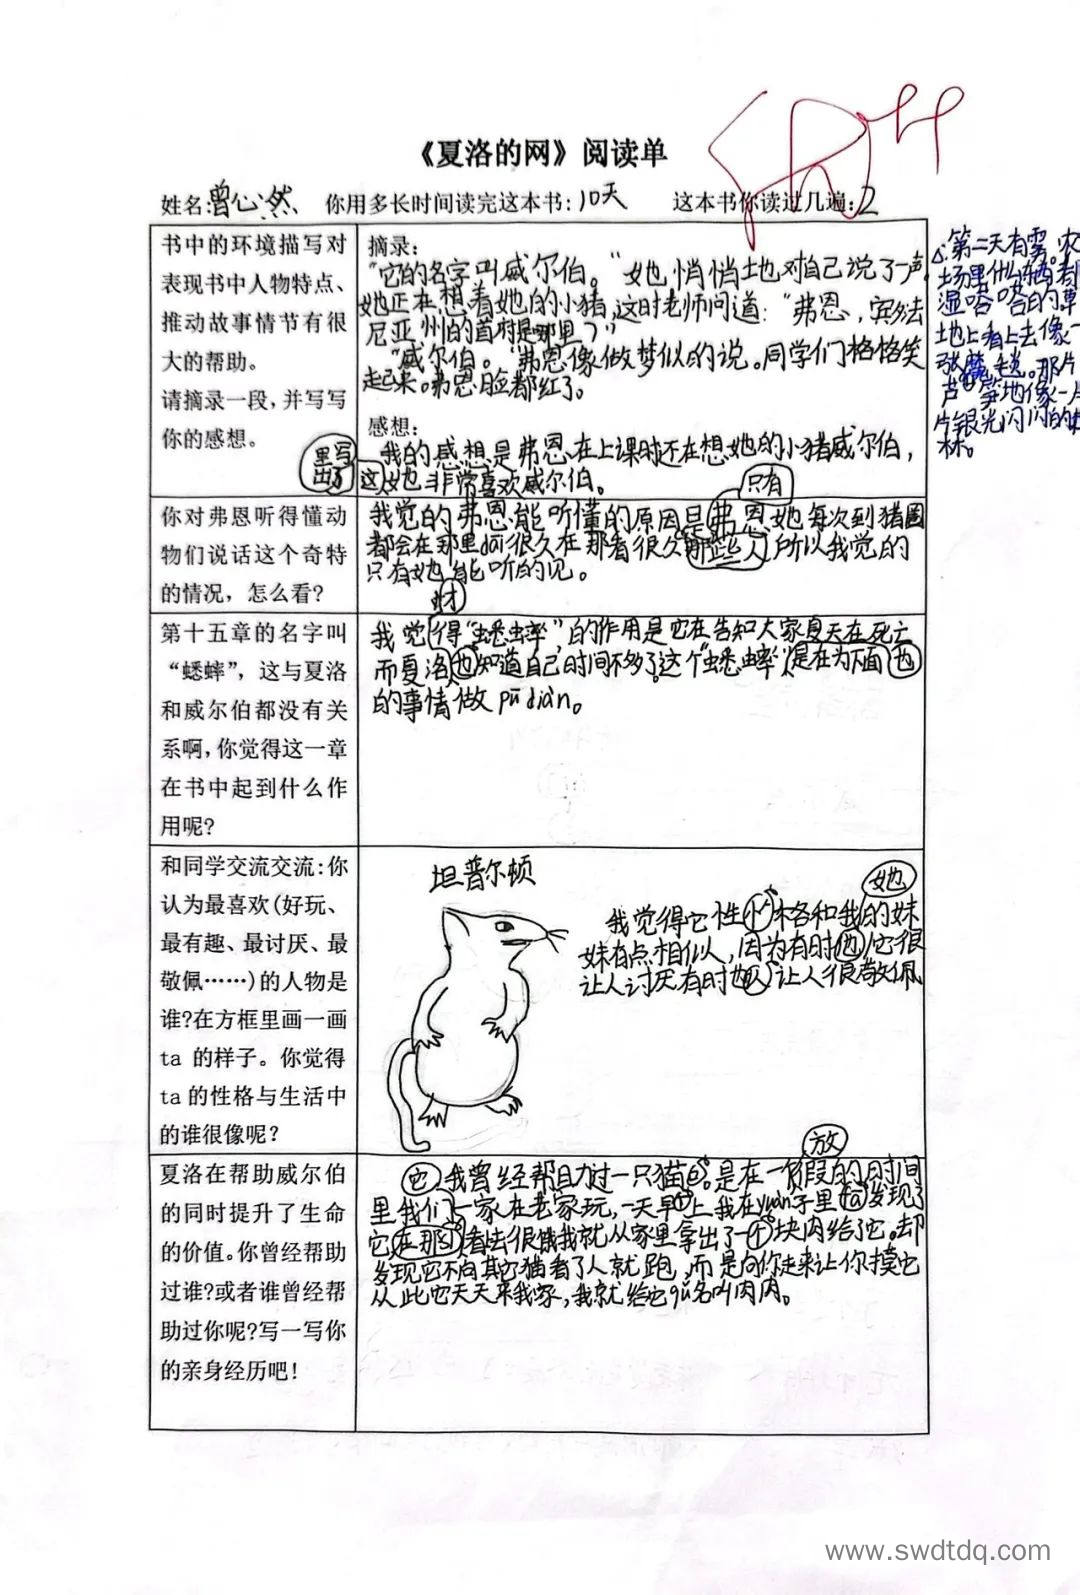 《夏洛的网》阅读单
姓名:曾心然 你用多长时间读完这本书:10天 这本书你读过几遍:2
书中的环境描写对
表现书中人物特点、
推动故事情节有很
大的帮助。
请摘录一段,并写写
你的感想。
摘录:
“它的名字叫威尔伯。”她悄悄地对自己说了一声
她正在想着她的小猪,这时老师问道:“弗恩,宾夕法
尼亚州的首府是哪里?”
“威尔伯。”弗恩像做梦似的说。同学们格格笑
起来。弗恩脸都红了。
感想:
我的感想是弗恩在上课时还在想她的小猪威尔伯,
这里写出了她非常喜欢威尔伯。
第二天有雾。农
场里什么东西都
湿嗒嗒的草
地上看上去像一
张魔毯。那片
芦笋地像一片
片银光闪闪的
林。
你对弗恩听得懂动
物们说话这个奇特
的情况,怎么看?
我觉的弗恩能听懂的原因是只有弗恩她每次到猪圈
都会在那里dāi很久在那看很久那些人所以我觉的
只有她才能听的见。
第十五章的名字叫
“蟋蟀”,这与夏洛
和威尔伯都没有关
系啊,你觉得这一章
在书中起到什么作
用呢?
我觉得“蟋蟀”的作用是它在告知大家夏天在死亡
而夏洛也知道自己时间不多了。这个“蟋蟀”是在为下面
的事情做pū diàn。
和同学交流交流:你
认为最喜欢(好玩、
最有趣、最讨厌、最
敬佩……)的人物是
谁?在方框里画一画
ta 的样子。你觉得
ta 的性格与生活中
的谁很像呢?
坦普尔顿
我觉得它性格和我的妹
妹有点相似,因为有时她/它很
让人讨厌有时也让人很敬佩
夏洛在帮助威尔伯
的同时提升了生命
的价值。你曾经帮助
过谁?或者谁曾经帮
助过你呢?写一写你
的亲身经历吧!
我曾经帮助过一只猫。是在一放假的时间
里我们一家在老家玩,一天早上我在yuàn子里发现了
它在那看去很饿我就从家里拿出了一块肉给了它。却
发现它不向其它猫看了人就跑,而是向你走来让你摸它
从此它天天来我家,我就给它qǔ名叫肉肉。
www.swdtdq.com